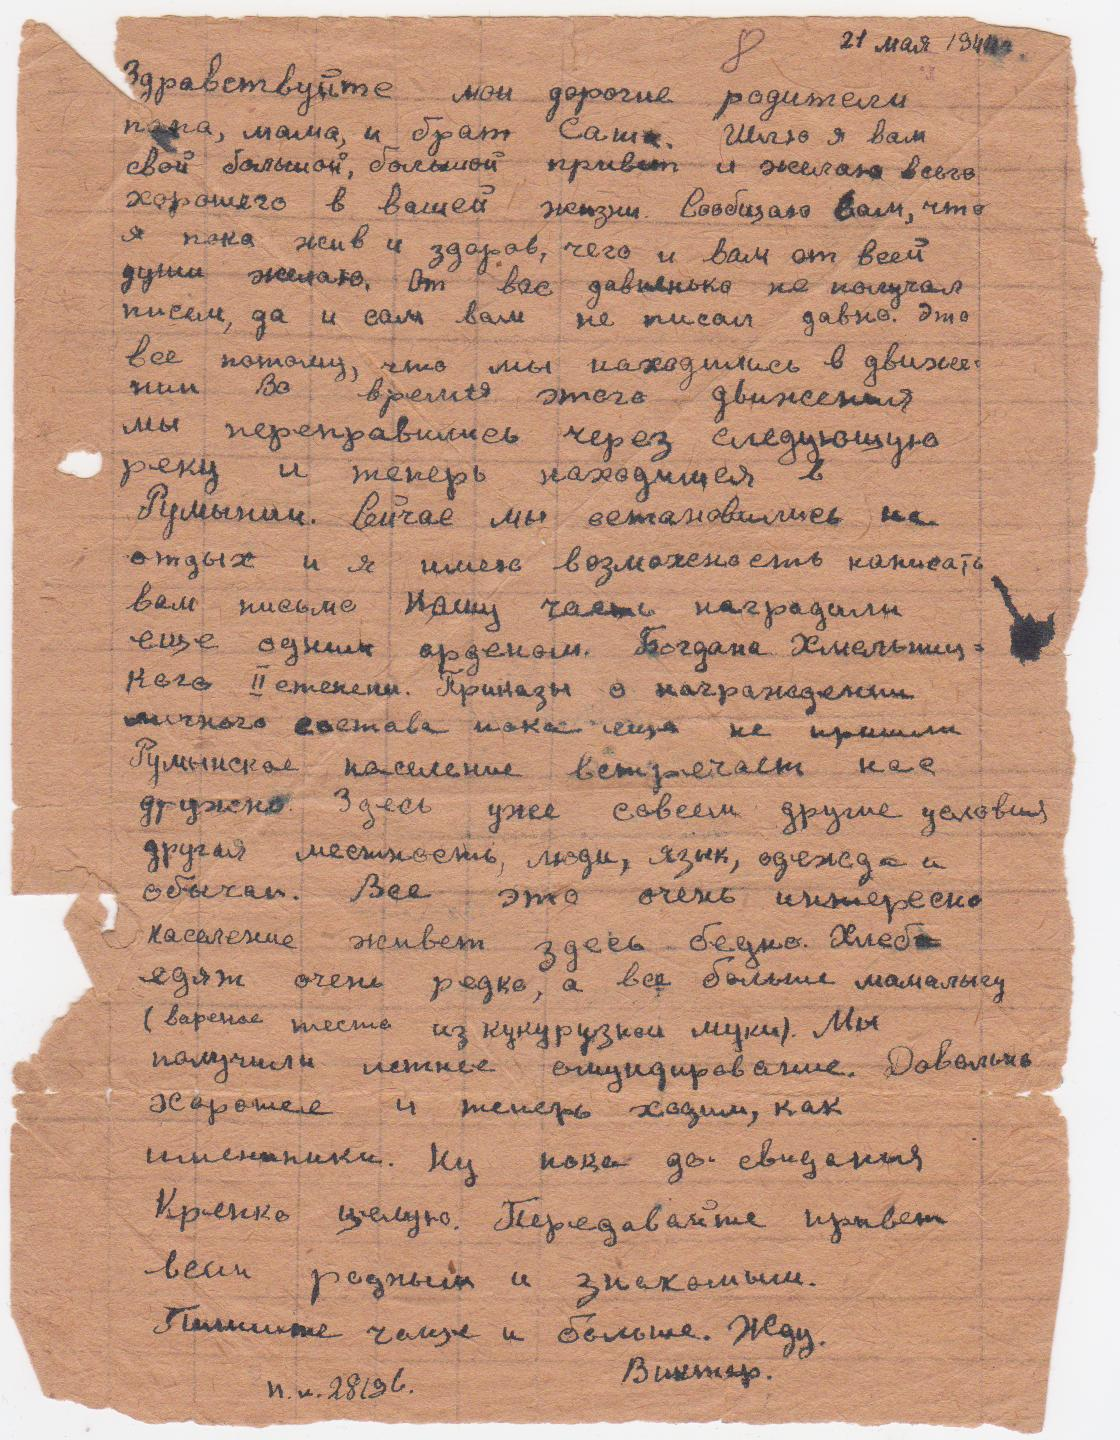 8
21 мая 1944г.
Здравствуйте мои дорогие родители
папа, мама, и брат Саша. Шлю я вам
свой большой, большой привет и желаю всего
хорошего в вашей жизни. Сообщаю вам, что
я пока жив и здоров, чего и вам от всей
души желаю. От вас давненько не получал
писем, да и сам вам не писал давно. Это
все потому, что мы находились в движе-
нии Во время этого движения
мы переправились через следующую
реку и теперь находимся в
Румынии. Сейчас мы остановились на
отдых и я имею возможность написать
вам письмо Нашу часть наградили
еще одним орденом. Богдана Хмельниц-
кого II степени. Приказы о награждении
личного состава пока еще не пришли
Румынское население встречает нас
дружно. Здесь уже совсем другие условия
другая местность, люди, язык, одежда и
обычаи. Все это очень интересно
Население живет здесь бедно. Хлеба
едят очень редко, а все больше мамалыгу
(вареное тесто из кукурузной муки). Мы
получили летнее обмундирование. Довольно
хорошее и теперь ходим, как
именинники. Ну пока до свидания
Крепко целую. Передавайте привет
всем родным и знакомым.
Пишите чаще и больше. Жду.
Виктор.
п.п. 28196.